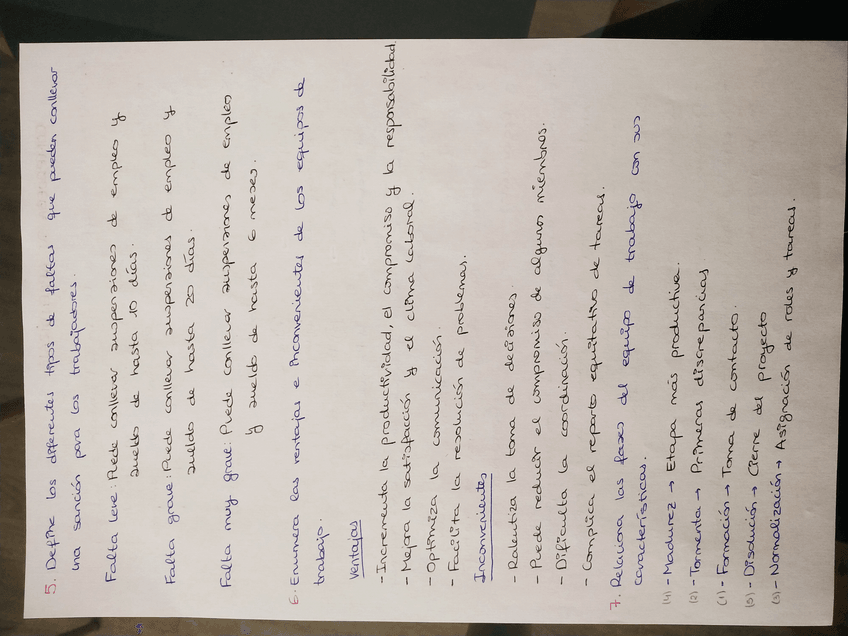 5. Define los diferentes tipos de faltas que pueden conllevar
una sanción para los trabajadores.
Falta leve: Puede conllevar suspensiones de empleo y
sueldo de hasta 10 días.
Falta grave: Puede conllevar suspensiones de empleo y
sueldo de hasta 20 días.
Falta muy grave: Puede conllevar suspensiones de empleo
y sueldo de hasta 6 meses.
6. Enumera las ventajas e inconvenientes de los equipos de
trabajo.
Ventajas
- Incrementa la productividad, el compromiso y la responsabilidad
- Mejora la satisfacción y el clima laboral.
- Optimiza la comunicación.
- Facilita la resolución de problemas.
Inconvenientes
- Ralentiza la toma de decisiones.
- Puede reducir el compromiso de algunos miembros.
- Dificulta la coordinación.
- Complica el reparto equitativo de tareas.
7. Relaciona las fases del equipo de trabajo con sus
características.
(4) - Madurez → Etapa más productiva.
(2) - Tormenta → Primeras discrepancias
(1) - Formación → Toma de contacto.
(5) - Disolución → Cierre del proyecto
(3) - Normalización → Asignación de roles y tareas.